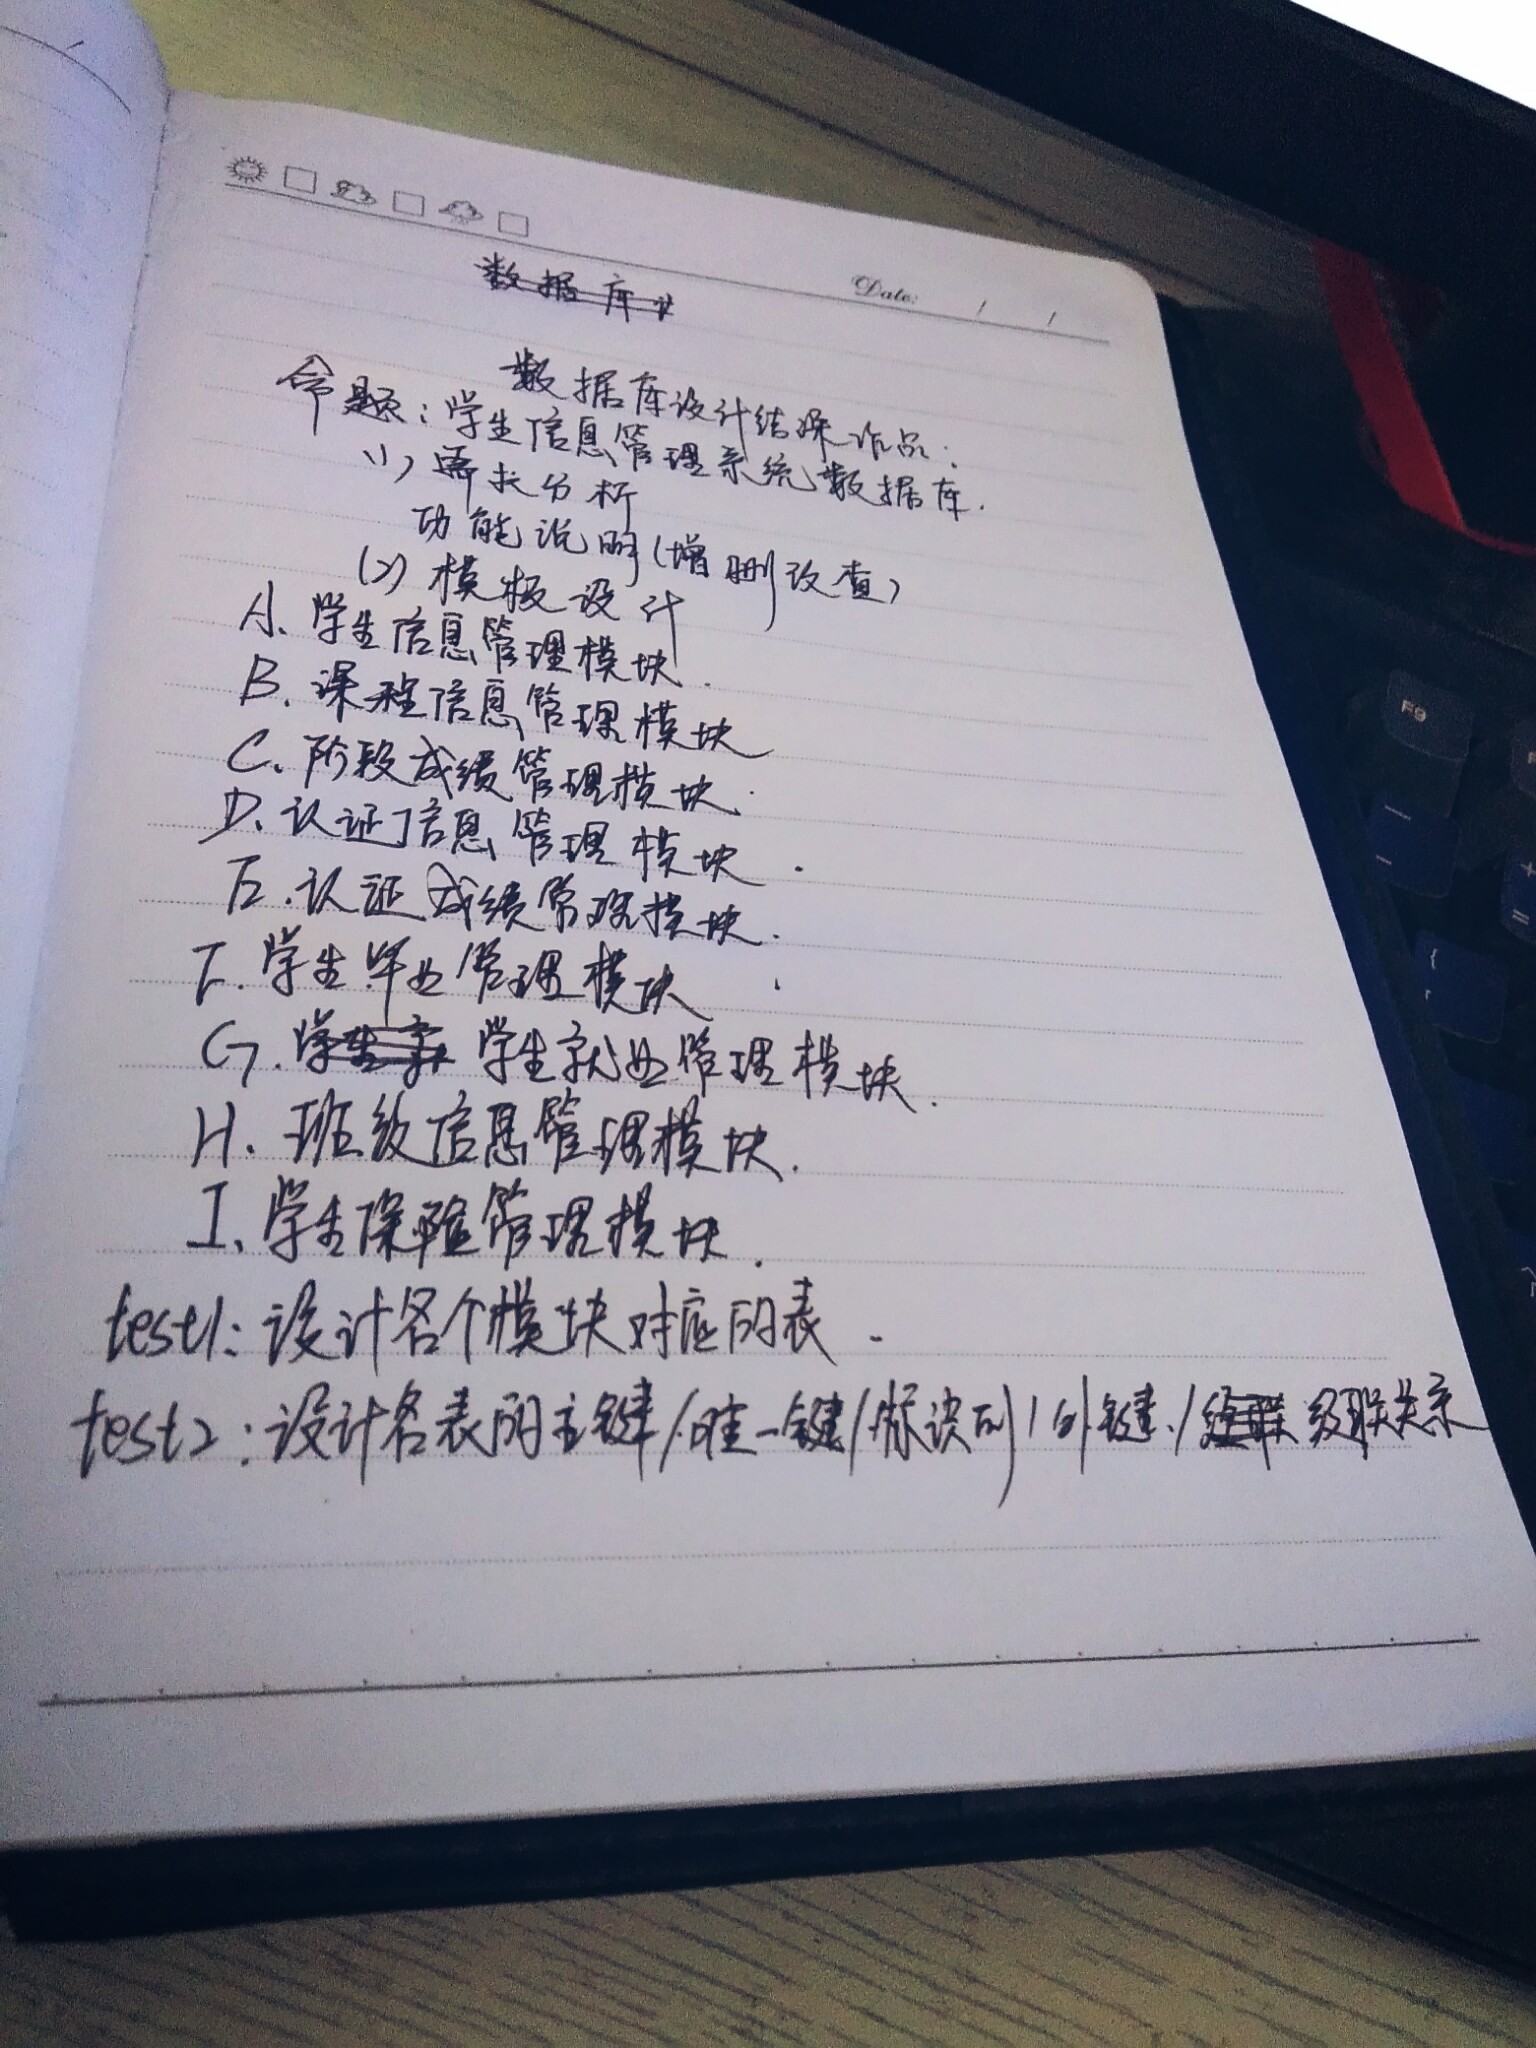 Date: / /
数据库设计结课作品.
命题:学生信息管理系统数据库.
(1)需求分析
功能说明(增删改查)
(2)模板设计
A、学生信息管理模块.
B.课程信息管理模块
C.阶段成绩管理模块.
D、认证信息管理模块.
E.认证成绩管理模块.
F.学生毕业管理模块.
G.学生就业管理模块.
H.班级信息管理模块.
I、学生保险管理模块.
test1:设计各个模块对应的表.
test2:设计各表的主键/唯一键/标识列/外键/级联关系
F9